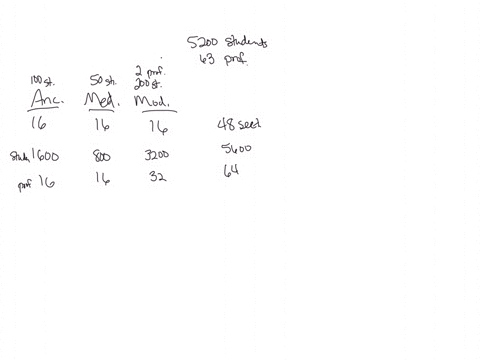 5200 students
63 prof.
100 st. 50 st. 2 prof. 200 st.
Anc. Med. Mod.
16 16 16 48 sect
Stud 1600 800 3200 5600
prof 16 16 32 64